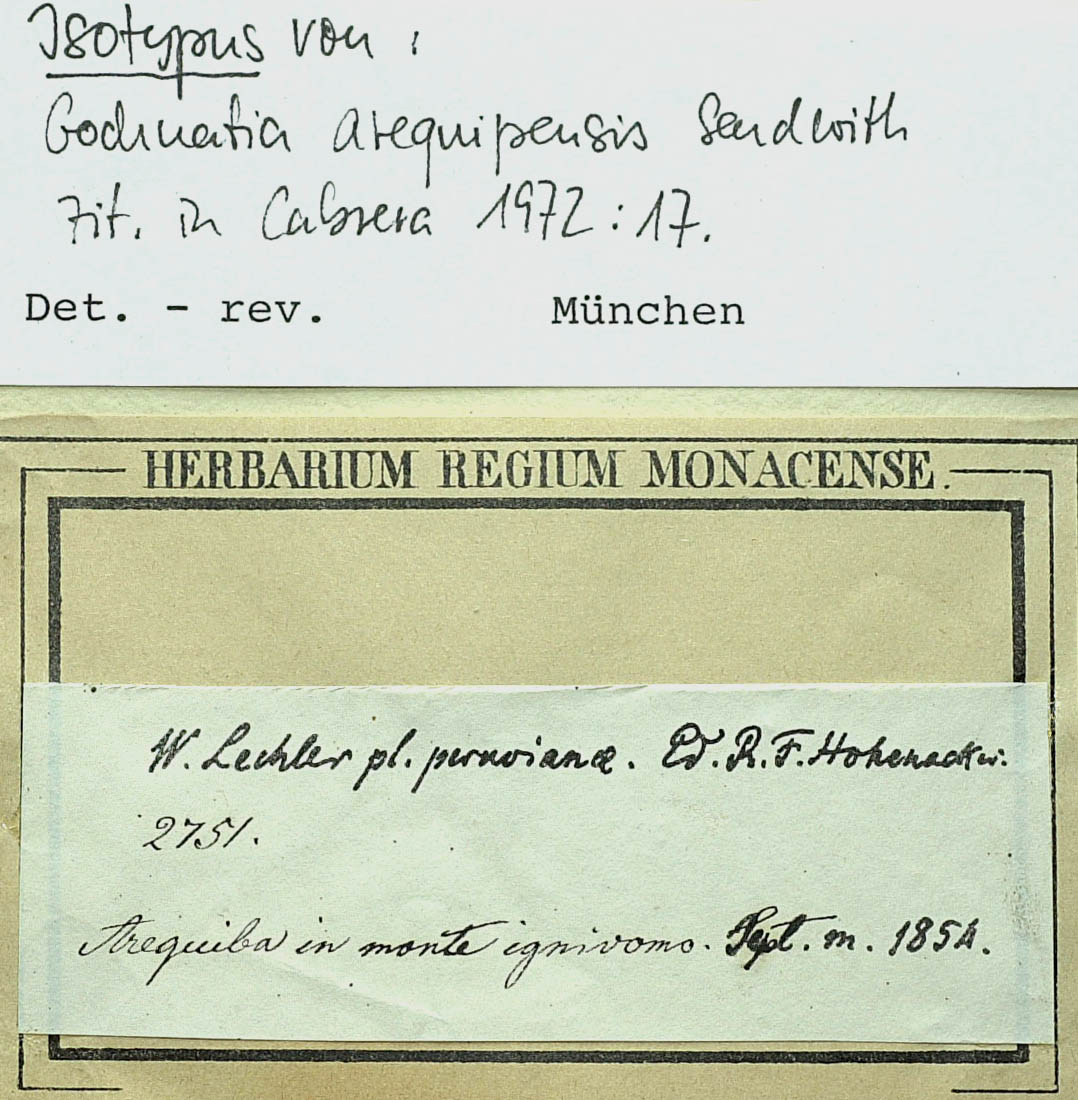 Isotypus von :
Gochnatia arequipensis Sandwith
zit. in Cabrera 1972 : 17.
Det. - rev. München
HERBARIUM REGIUM MONACENSE.
W. Lechler pl. peruvianæ. Ed. R. F. Hohenacker.
2751.
Arequiba in monte ignivomo. Sept. m. 1854.